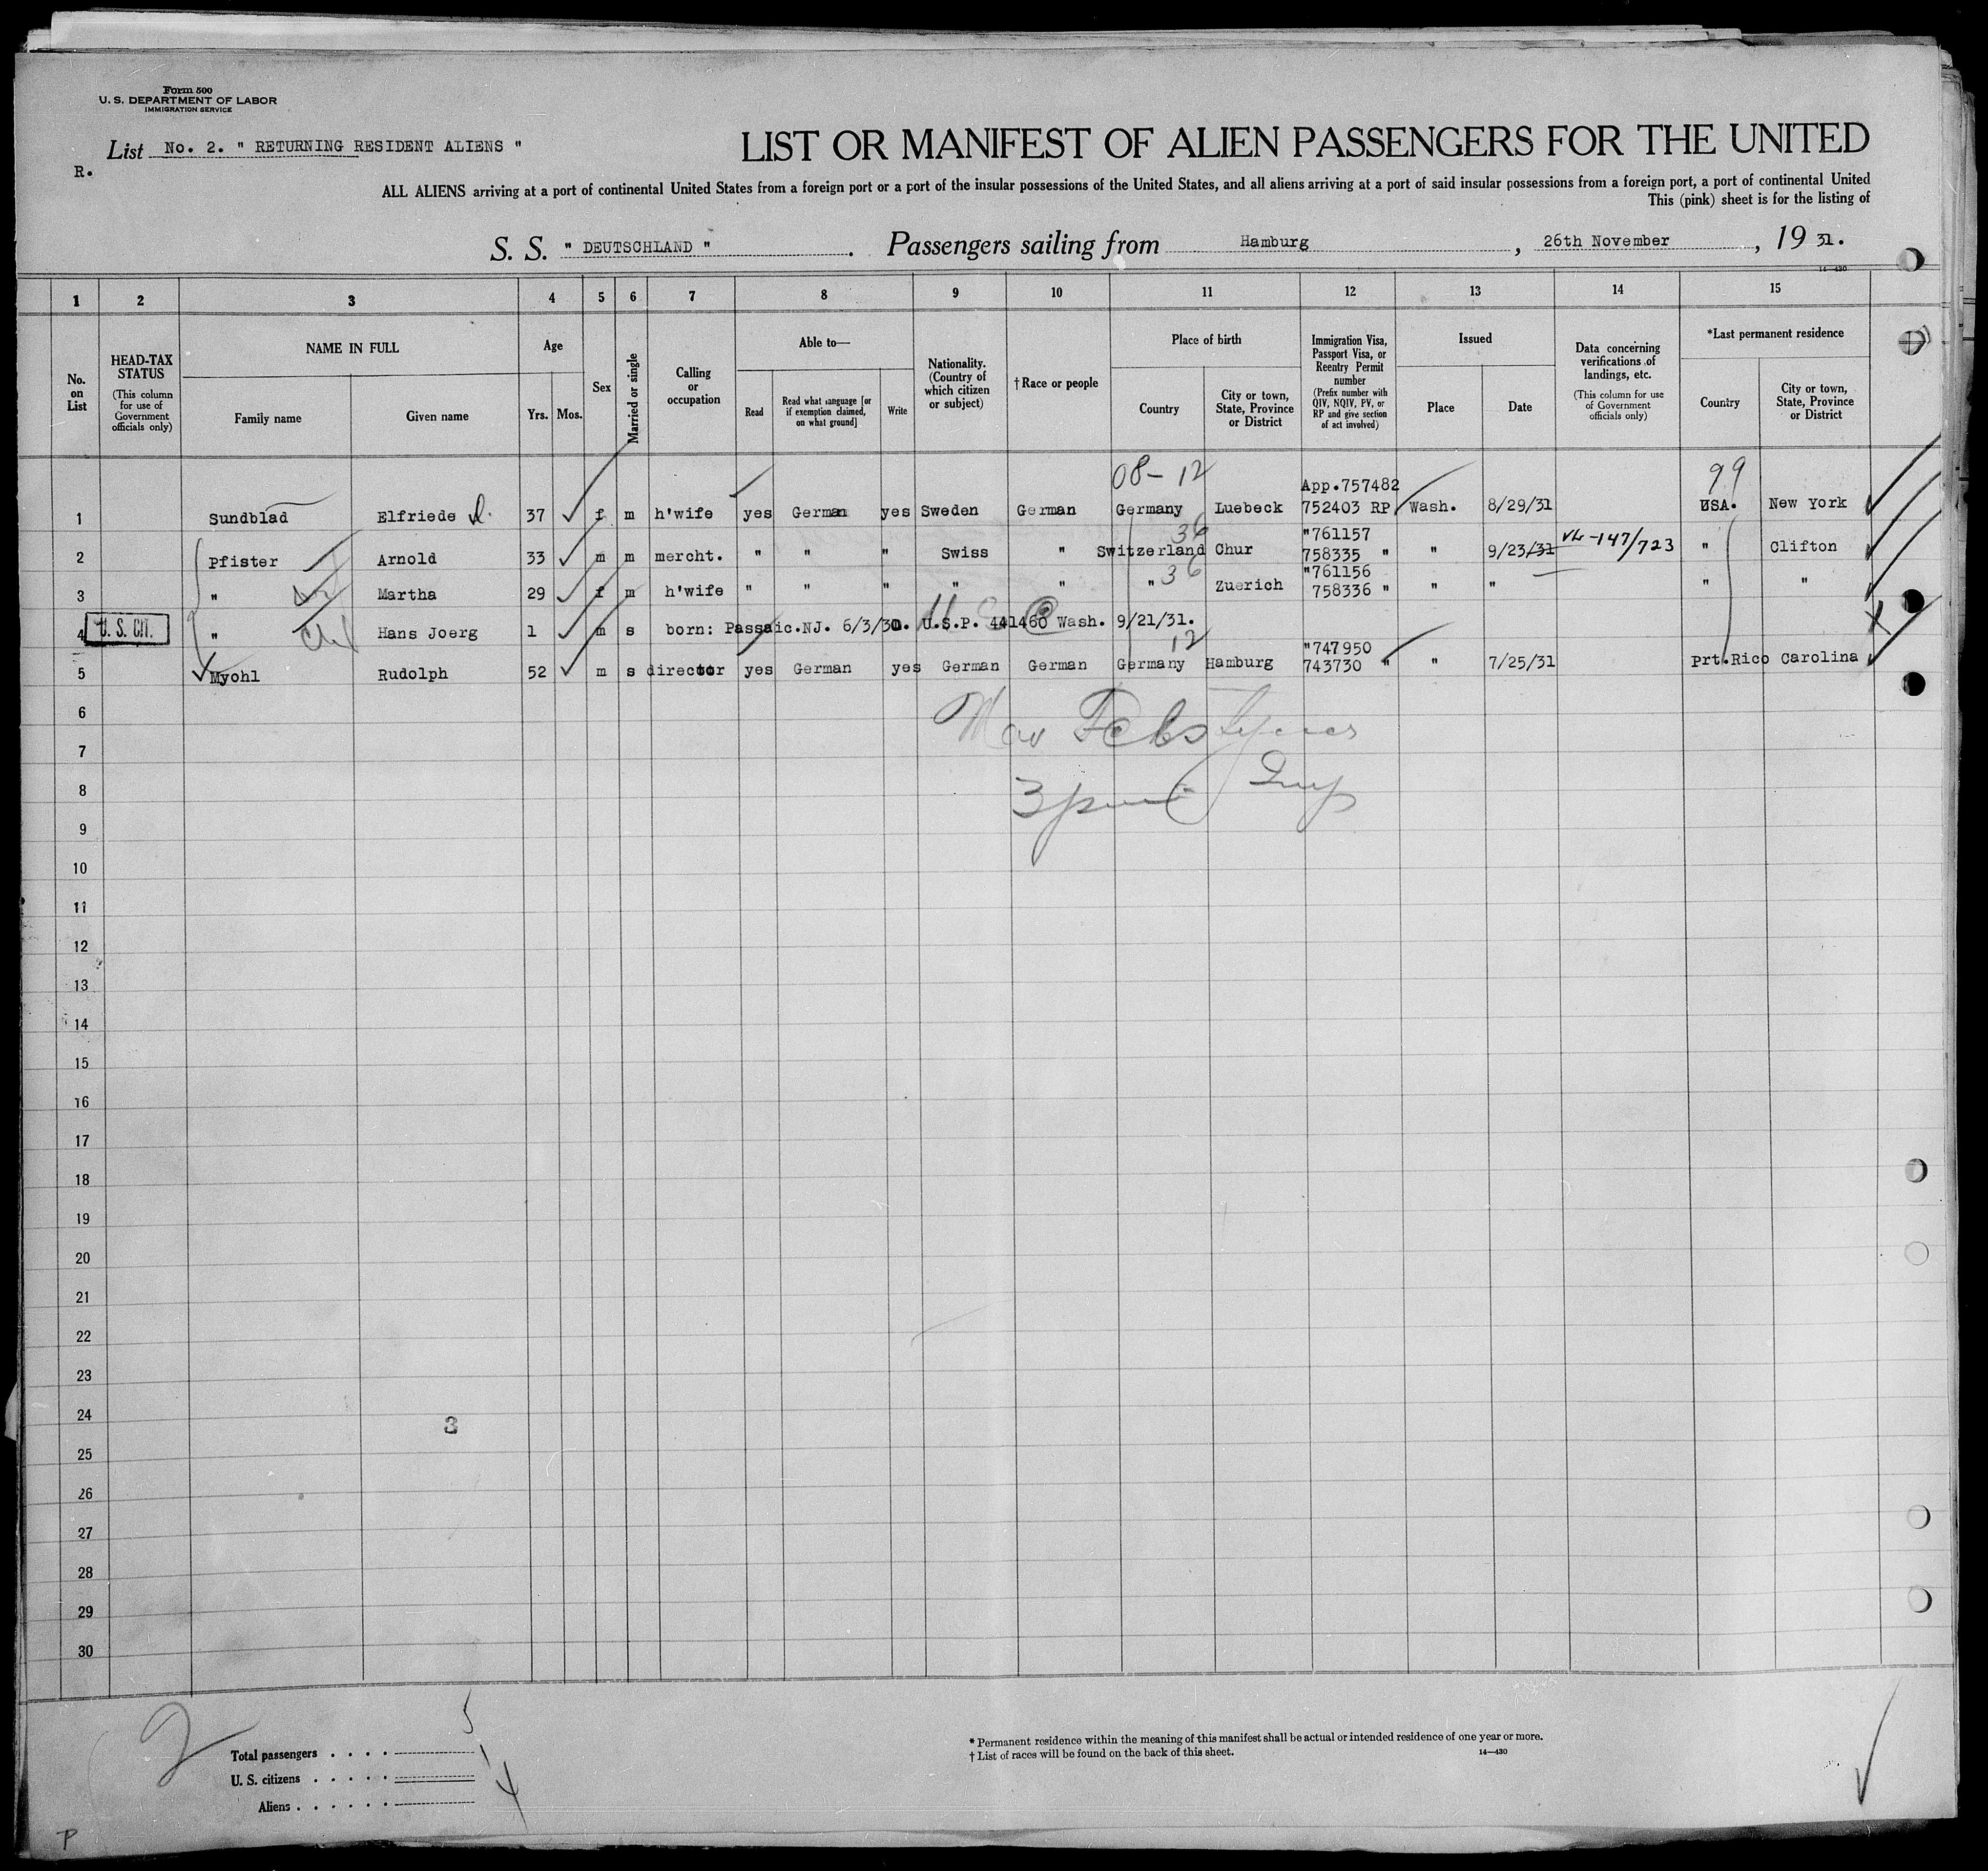 Form 500
U. S. DEPARTMENT OF LABOR
IMMIGRATION SERVICE
List No. 2. " RETURNING RESIDENT ALIENS "
R.
LIST OR MANIFEST OF ALIEN PASSENGERS FOR THE UNITED
ALL ALIENS arriving at a port of continental United States from a foreign port or a port of the insular possessions of the United States, and all aliens arriving at a port of said insular possessions from a foreign port, a port of continental United
This (pink) sheet is for the listing of
S. S. " DEUTSCHLAND ". Passengers sailing from Hamburg, 26th November, 1931.
14—430
1 2 3 4 5 6 7 8 9 10 11 12 13 14 15
No. on List
HEAD-TAX STATUS (This column for use of Government officials only)
NAME IN FULL
Family name Given name
Age
Yrs. Mos.
Sex
Married or single
Calling or occupation
Able to—
Read
Read what language [or if exemption claimed, on what ground]
Write
Nationality. (Country of which citizen or subject)
†Race or people
Place of birth
Country
City or town, State, Province or District
Immigration Visa, Passport Visa, or Reentry Permit number (Prefix number with QIV, NQIV, PV, or RP and give section of act involved)
Issued
Place Date
Data concerning verifications of landings, etc. (This column for use of Government officials only)
*Last permanent residence
Country
City or town, State, Province or District
08-12 99
App.757482
1 Sundblad Elfriede 37 f m h'wife yes German yes Sweden German Germany Luebeck 752403 RP Wash. 8/29/31 USA. New York
36 "761157
2 Pfister Arnold 33 m m mercht. " " " Swiss " Switzerland Chur 758335 " " 9/23/31 -147/723 " Clifton
36 "761156
3 " Martha 29 f m h'wife " " " " " " Zuerich 758336 " " " " "
4 U. S. CIT. " Hans Joerg 1 m s born: Passaic.NJ. 6/3/30. U.S.P. 441460 Wash. 9/21/31.
12 "747950
5 Myohl Rudolph 52 m s director yes German yes German German Germany Hamburg 743730 " " 7/25/31 Prt.Rico Carolina
6
7
8
9
10
11
12
13
14
15
16
17
18
19
20
21
22
23
24
3
25
26
27
28
29
30
2
Total passengers . . . . 5
U. S. citizens . . . . . 1
Aliens . . . . . . 4
* Permanent residence within the meaning of this manifest shall be actual or intended residence of one year or more.
† List of races will be found on the back of this sheet.
14—430
P